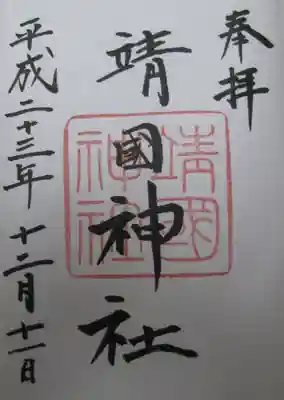 奉拝
靖國神社
靖國神社
平成二十三年 十二月十一日